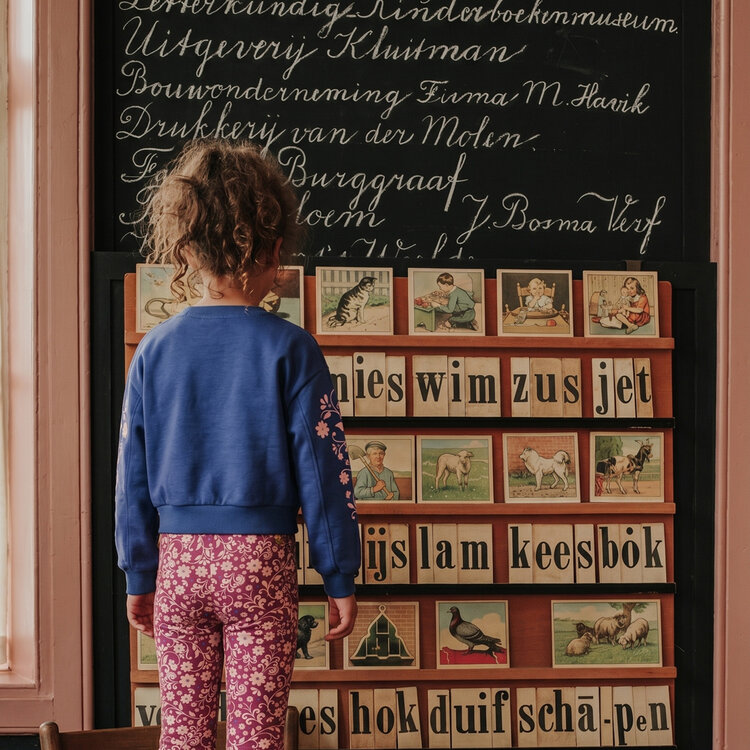 Letterkundig Kinderboekenmuseum.
Uitgeverij Kluitman
Bouwonderneming Firma M. Havik
Drukkerij van der Molen.
Burggraaf
J. Bosma Verf
mies wim zus jet
ijs lam kees bok
hok duif schā-pen